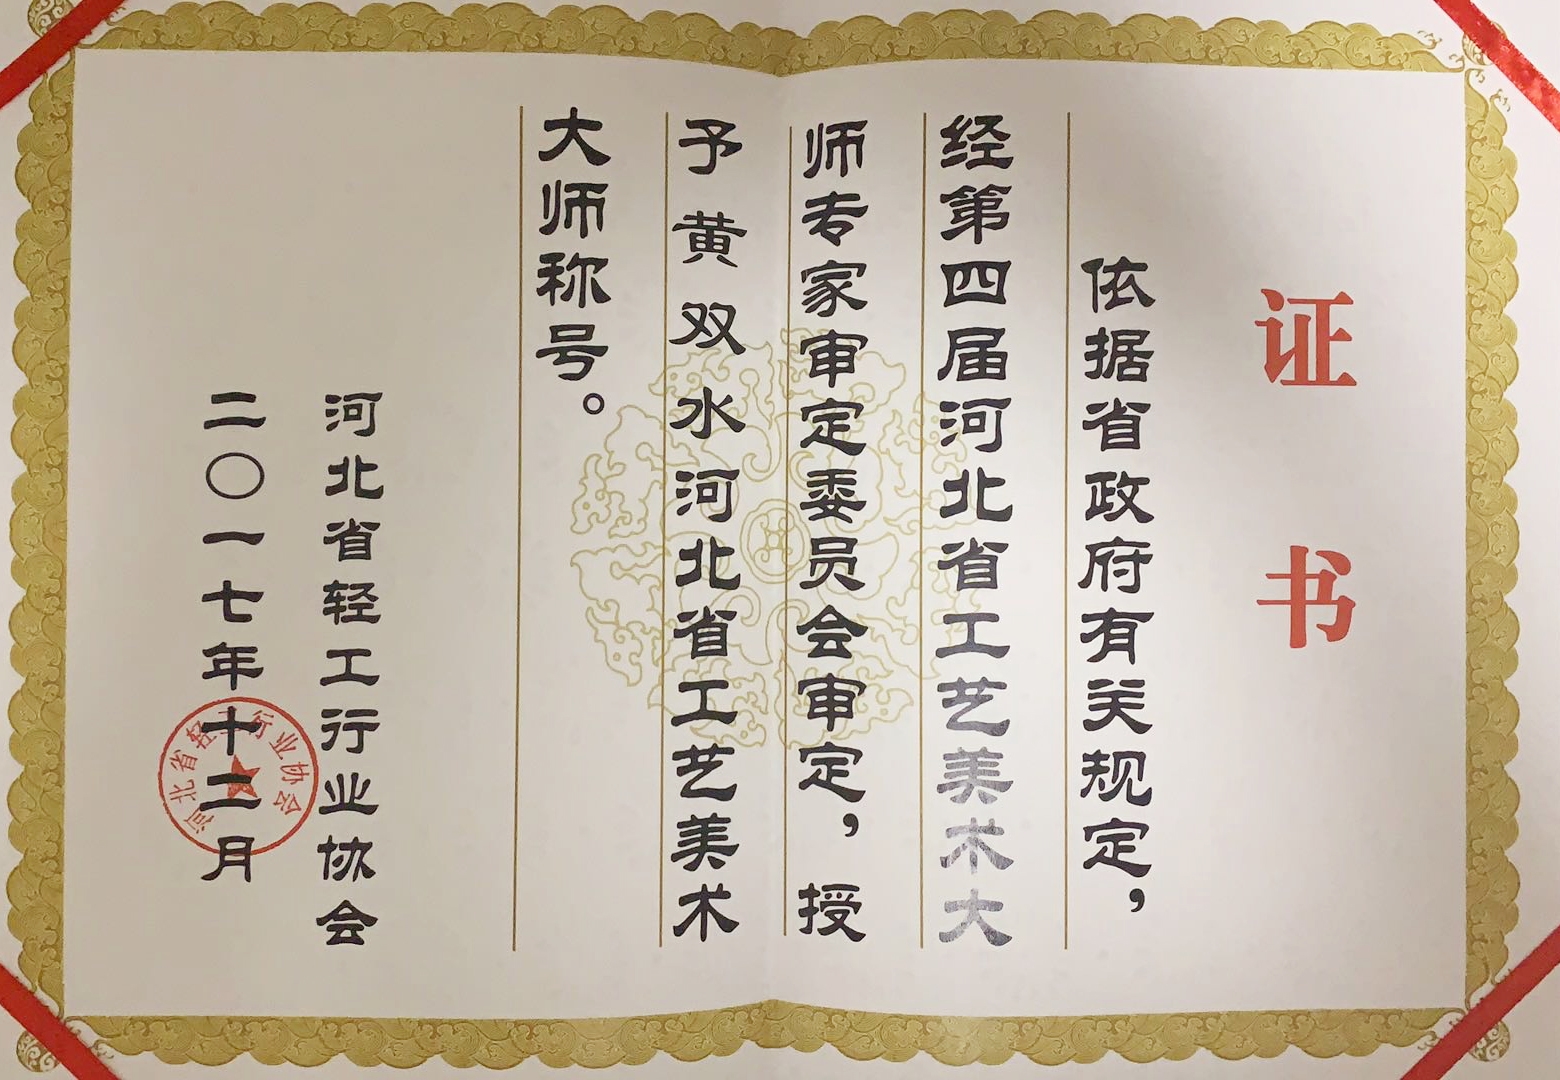 证书
依据省政府有关规定，
经第四届河北省工艺美术大
师专家审定委员会审定，授
予黄双水河北省工艺美术
大师称号。
河北省轻工行业协会
二〇一七年十二月
河北省轻工行业协会